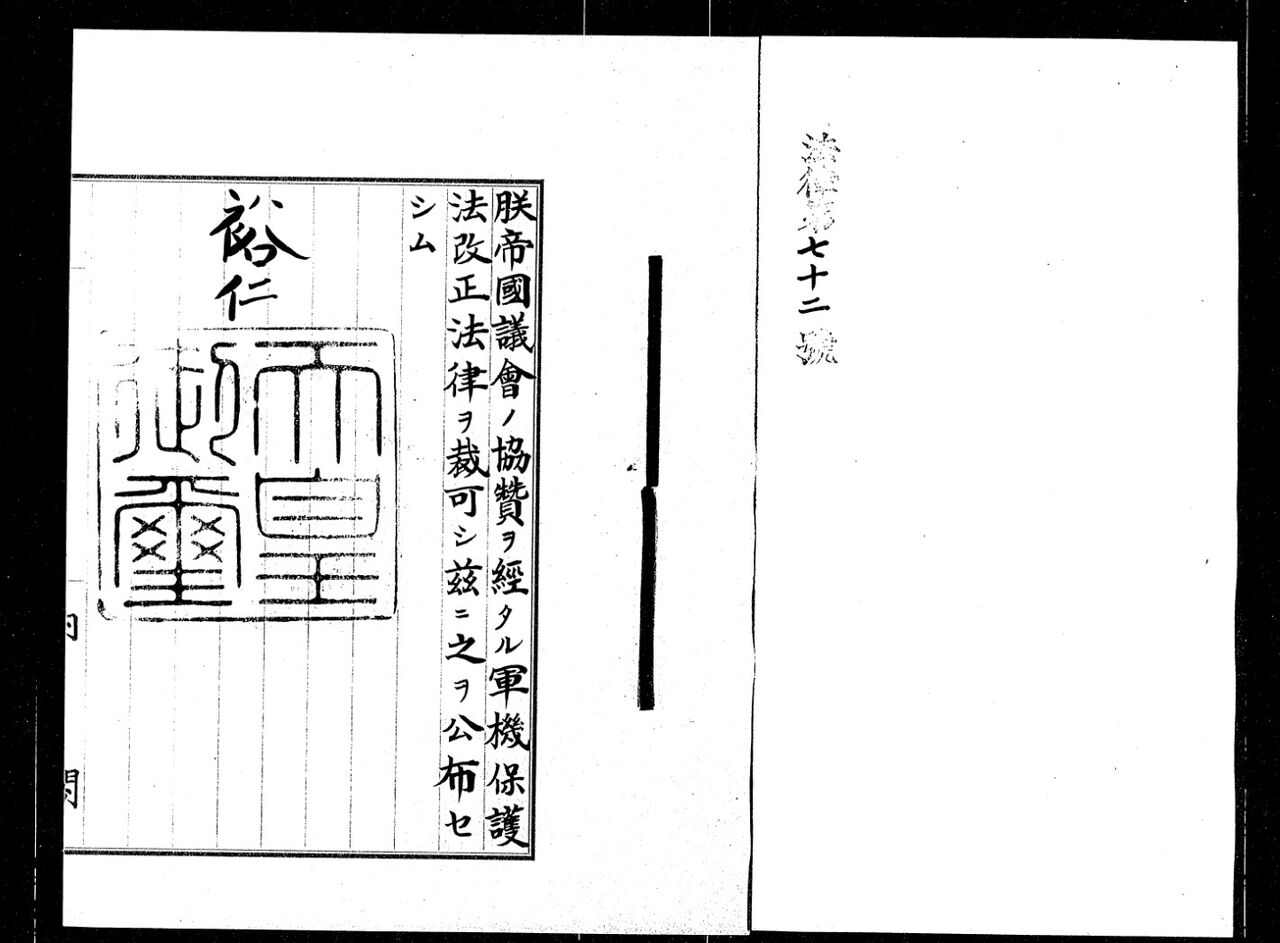 法律第七十二號
朕帝國議會ノ協贊ヲ經タル軍機保護
法改正法律ヲ裁可シ茲ニ之ヲ公布セ
シム
裕仁
天皇
御璽
内
閣